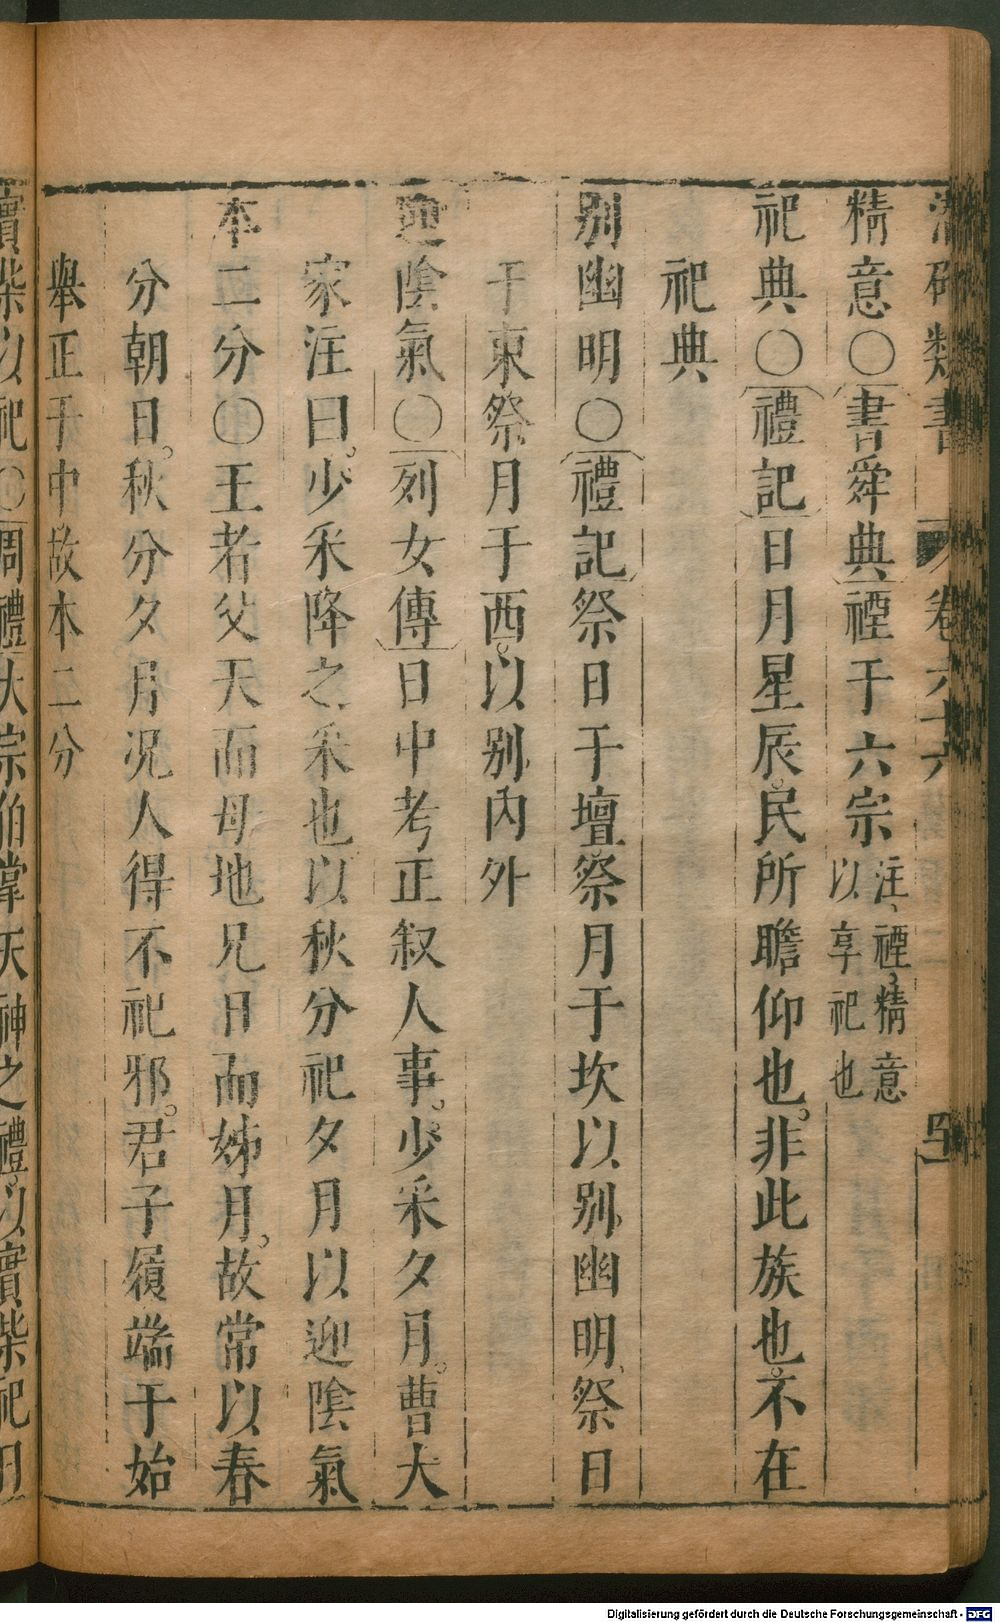 類書 卷六十六
精意〇書舜典禋于六宗注、禋、精意以享祀也
祀典〇禮記日月星辰。民所瞻仰也。非此族也。不在
祀典
別幽明〇禮記祭日于壇。祭月于坎以別幽明、祭日
于東祭月于西。以別內外
迎陰氣〇列女傳日中考正叙人事。少采夕月。曹大
家注曰。少采降之采也以秋分祀夕月以迎陰氣
本二分〇王者父天而母地兄日而姊月。故常以春
分朝日。秋分夕月況人得不祀邪。君子履端于始
舉正于中故本二分
實柴以祀〇周禮大宗伯掌天神之禮。以實柴祀日
Digitalisierung gefördert durch die Deutsche Forschungsgemeinschaft - DFG